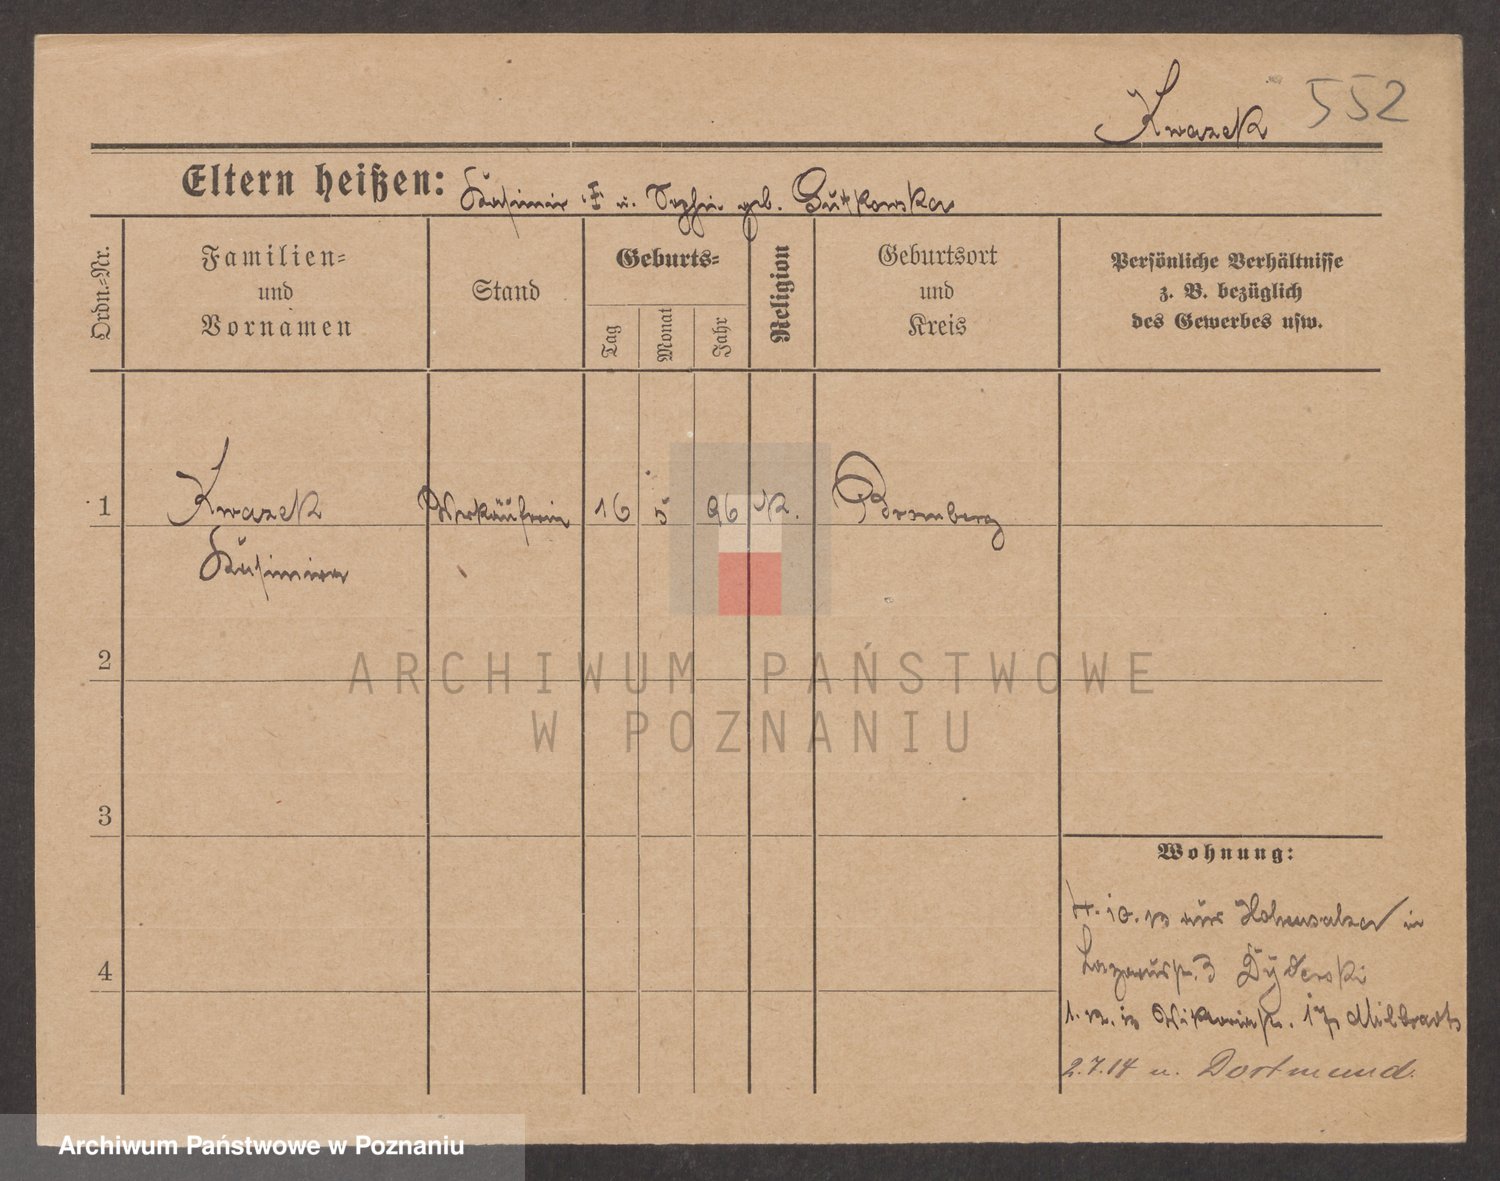 Kwazek 552
Eltern heißen: Kasimir u. Sophie geb. Gutkowska
Ordn.-Nr.
Familien-
und
Vornamen
Stand
Geburts-
Tag
Monat
Jahr
Religion
Geburtsort
und
Kreis
Persönliche Verhältnisse
z. B. bezüglich
des Gewerbes usw.
1 Kwazek Verkäuferin 16 5 96 K. Bromberg
Kasimira
2
ARCHIWUM PAŃSTWOWE
W POZNANIU
3
Wohnung:
4. 10. 13 Hohensalza in
4
Lazarusstr. 3 Dyderski
1. in Viktoriastr. 17 Milbradt
2.7.14 n. Dortmund.
Archiwum Państwowe w Poznaniu